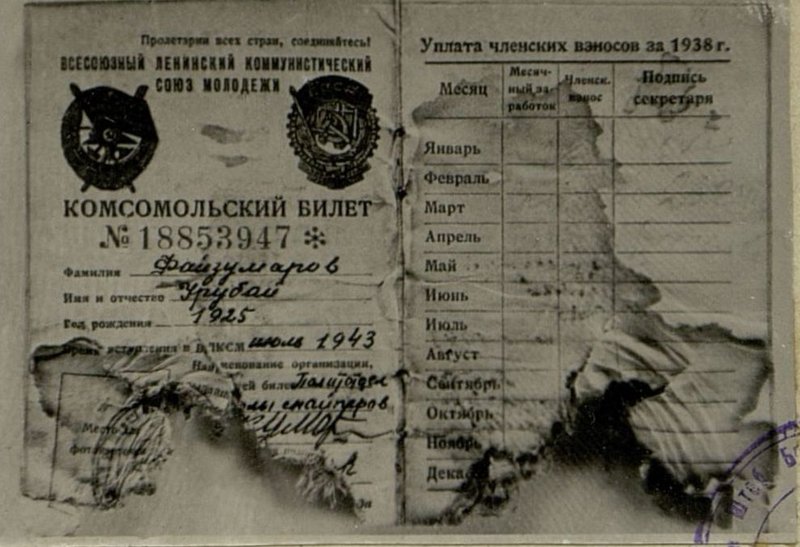 Пролетарии всех стран, соединяйтесь!
ВСЕСОЮЗНЫЙ ЛЕНИНСКИЙ КОММУНИСТИЧЕСКИЙ
СОЮЗ МОЛОДЕЖИ
КОМСОМОЛЬСКИЙ БИЛЕТ
№ 18853947 *
Фамилия Файзумаров
Имя и отчество Урубай
Год рождения 1925
Время вступления в ВЛКСМ июль 1943
Наименование организации,
ей билет Политотдел
лы снайперов
Место для
Уплата членских взносов за 1938 г.
Месяц
Месяч-
ный за-
работок
Членск.
взнос
Подпись
секретаря
Январь
Февраль
Март
Апрель
Май
Июнь
Июль
Август
Сентябрь
Октябрь
Ноябрь
Дека
ШТАБ